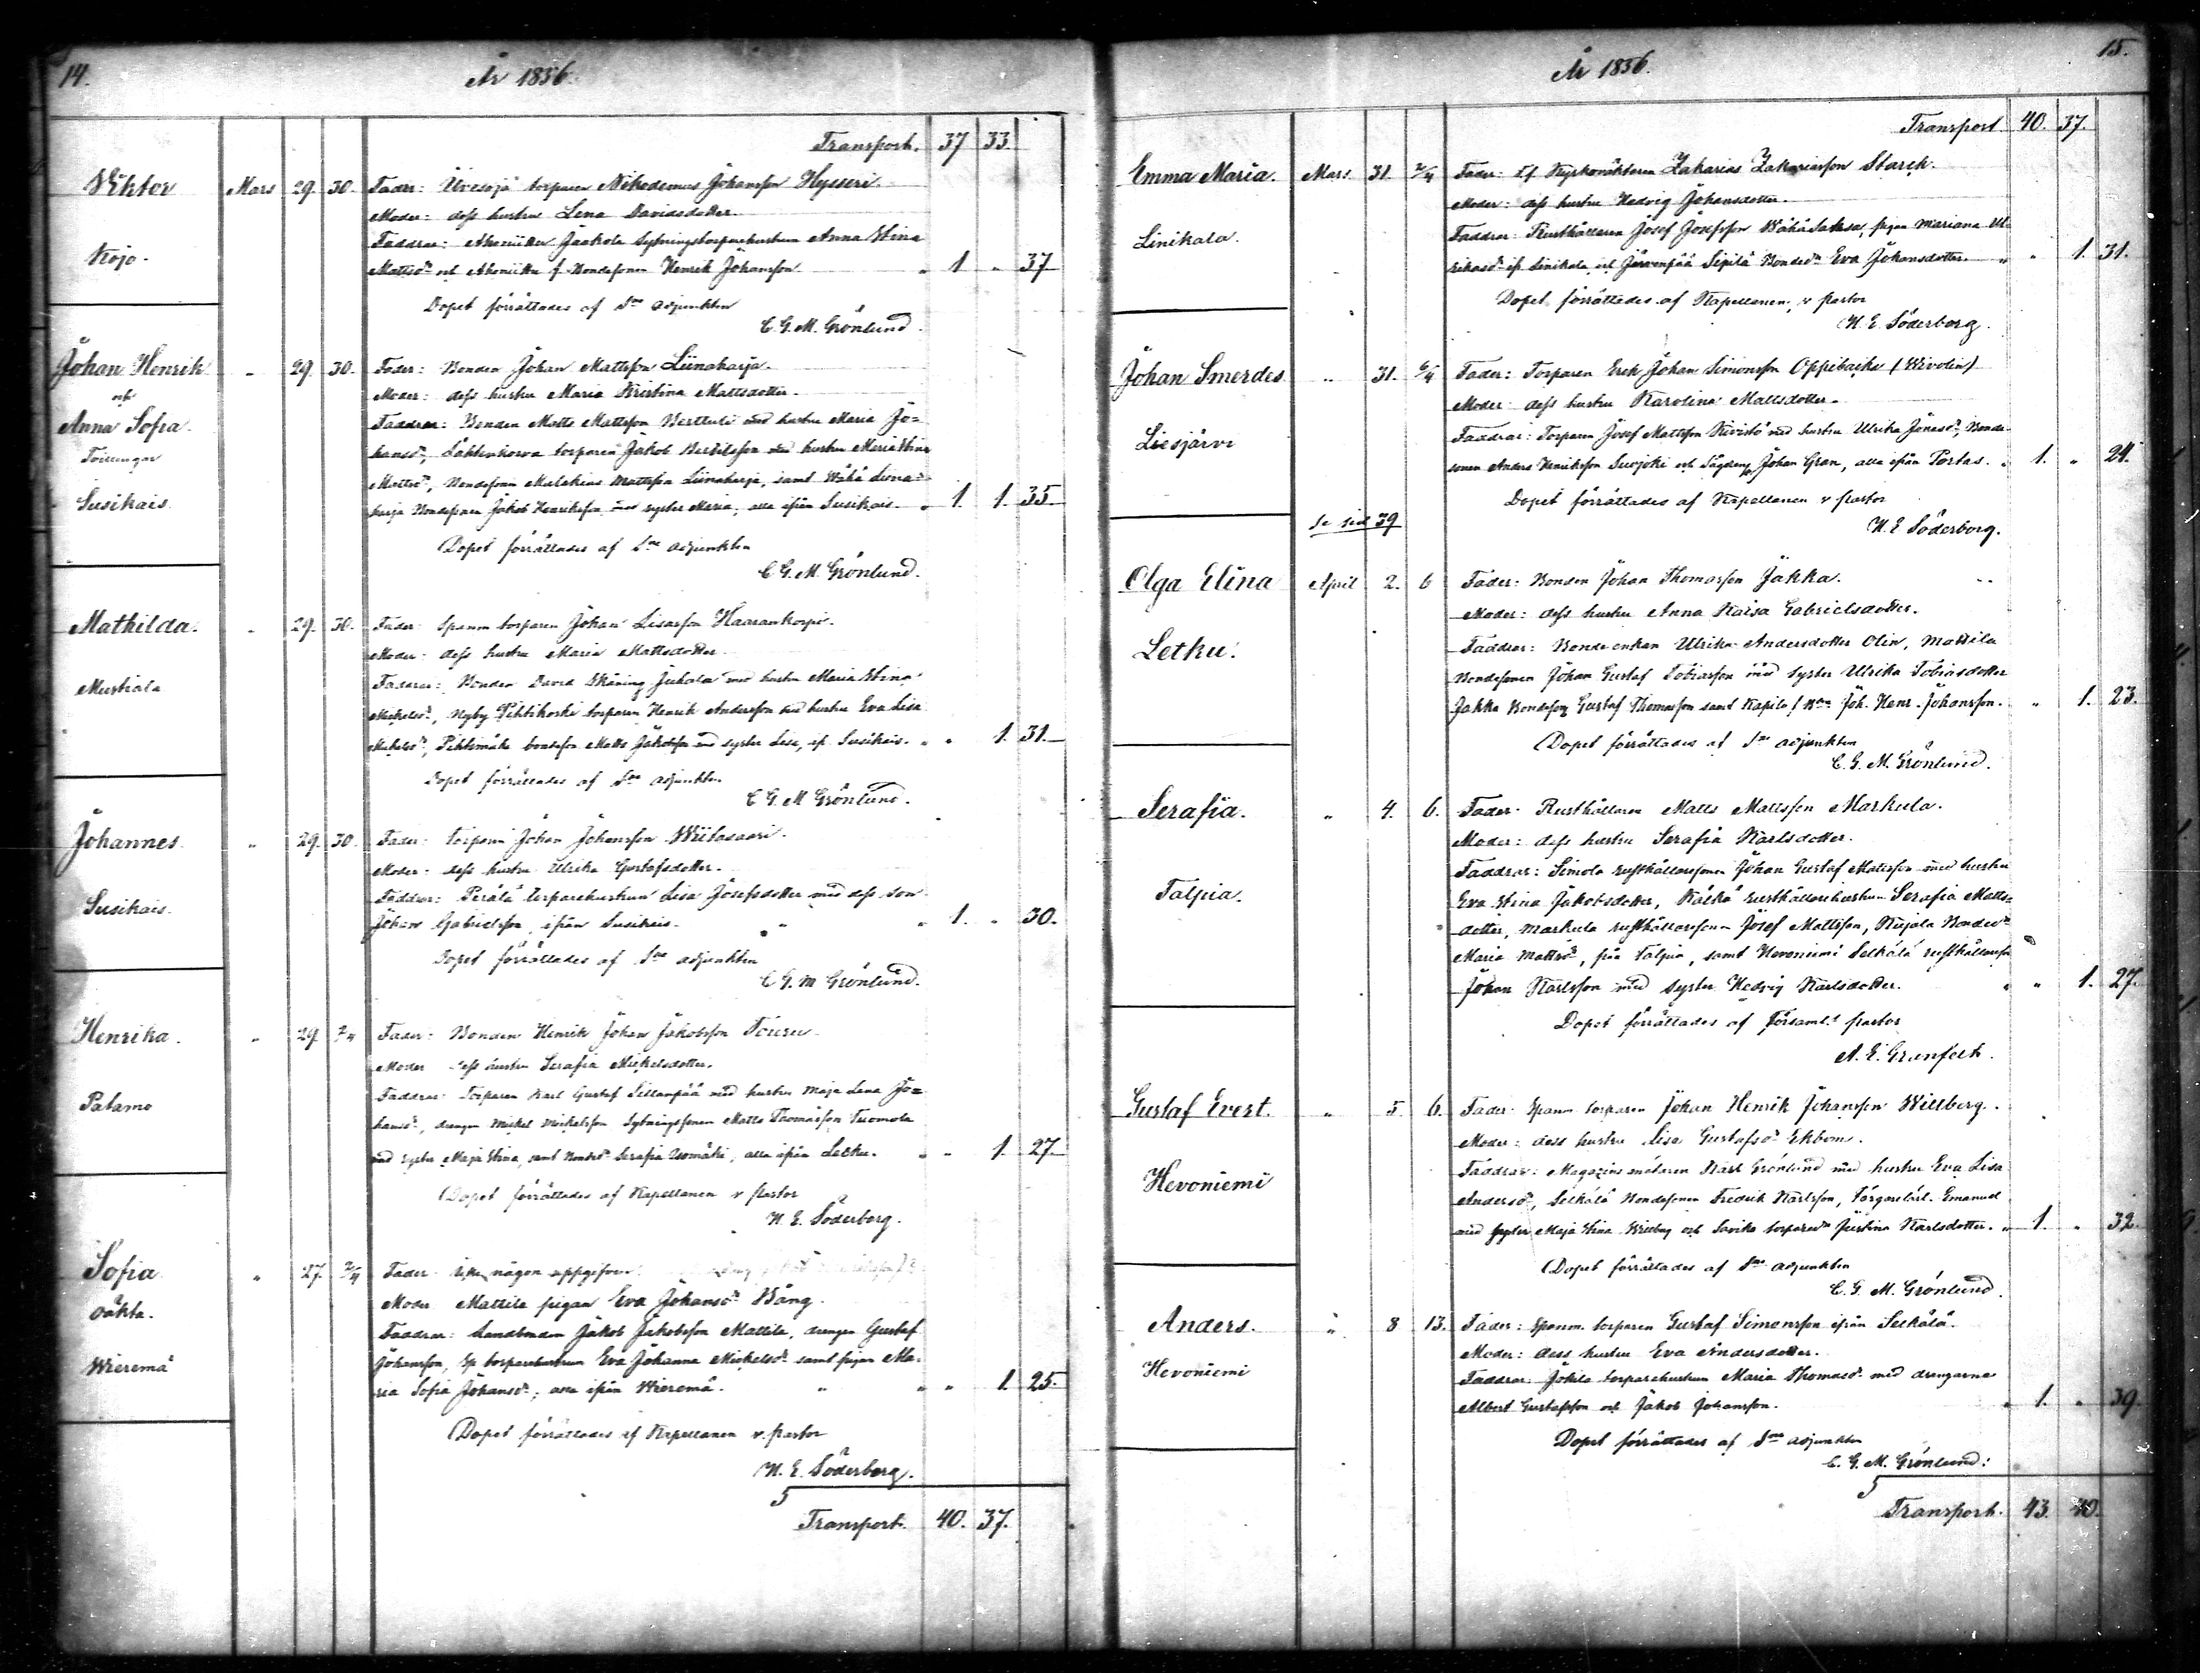 14.
År 1856.
Transport. 37 33.
Viktor Mars 29. 30. Fader: torparen Nikodemus Johansson Hysseri.
Moder: dess hustru Lena Davidsdotter.
Kojo. Faddrar: Jaakola Sytningstorparehustrun Anna Stina
Mattsdr och Bondesonen Henrik Johansson. " 1 " 37
Dopet förrättades af Sne adjunkten
C. G. M. Grönlund.
Johan Henrik " 29. 30. Fader: Bonden Johan Mattsson Liinaharja.
och Moder: dess hustru Maria Kristina Mattsdotter.
Anna Sofia. Faddrar: Bonden Matts Mattsson Berttuli med hustru Maria Jo-
Tvillingar hansdr, torparen Jakob med hustru Maria Stina
Mattsdr, Bondesonen Malakias Mattsson Liinaharja, samt Wähä Liina-
Susikais harja Bondesonen Jakob Henriksson med syster Maria, alla ifrån Susikais. " 1. 1. 35
Dopet förrättades af Sne adjunkten
C. G. M. Grönlund.
Mathilda. " 29. 30. Fader: Spanm torparen Johan Haarankorpi.
Moder: dess hustru Maria Mattsdotter
Mustiala Faddrar: Bonden David Skäning Juhala med hustru Maria Stina
Mickelsdr, Nyby torparen Henrik Andersson med hustru Eva Lisa
Mickelsdr, bondeson Matts Jakobsson med syster Lisa, if. Susikais. " " 1. 31.
Dopet förrättades af Sne adjunkten
C G. M Grönlund.
Johannes. " 29. 30. Fader: torparen Johan Johansson Wiitasaari.
Moder: dess hustru Ulrika Gustafsdotter.
Susikais. Faddrar: Perälä torparehustrun Lisa Josefsdotter med dess son
Johan Gabrielsson, ifrån Susikais. " " 1. " 30.
Dopet förrättades af Sne adjunkten
C G. M Grönlund.
Henrika. " 29 2/4 Fader: Bonden Henrik Johan Jakobsson Touru
Moder dess hustru Serafia Mickelsdotter.
Palamo Faddrar: Torparen Karl Gustaf Sillanpää med hustru Maja Lena Jo-
hansdr, drengen Mickel Mickelsson Sytningssonen Matts Thomasson Tuomola
med syster Maja Stina, samt Bondedr Serafia Uomäki, alla ifrån Letku. " " 1. 27.
Dopet förrättades af Kapellanen v pastor
H. E. Söderborg.
Sofia " 27. 2/4 Fader icke någon uppgifven.
oäkta. Moder Mattila pigan Eva Johansdr Bäng.
Faddrar: Landbonden Jakob Jakobsson Mattila, drengen Gustaf
Wieremä Johansson, Sp torparehustrun Eva Johanna Mickelsdr samt pigan Ma-
ria Sofia Johansdr, alla ifrån Wieremä. " " " 1. 25.
Dopet förrättades af Kapellanen v. pastor
H. E. Söderborg.
Transport. 40. 37.
15.
År 1856.
Transport 40. 37.
Emma Maria. Mars. 31. 2/4 Fader: Kyrkoväktaren Zakarias Zakariasson Starck.
Moder: dess hustru Hedvig Johansdotter.
Linikala. Faddrar: Rusthållaren Josef Josefsson WähäSaksa, pigan Mariana Ul-
rikasdr if. Linikala och Järvenpää Sipilä Bondedr Eva Johansdotter. " " 1. 31.
Dopet förrättades af Kapellanen, v pastor
H. E. Söderborg.
Johan Smerdes " 31. 6/4 Fader: Torparen Erik Johan Simonsson Oppibacka (Wivolin)
Moder dess hustru Karolina Mattsdotter.
Liesjärvi Faddrar: Torparen Josef Mattsson Kivistö med hustru Ulrika Jonasdr, Bonde-
sonen Anders Henriksson Suojoki och Johan Gran, alla ifrån Portas. " 1. " 24.
Dopet förrättades af Kapellanen v pastor
H. E Söderborg.
Se sid 39
Olga Elina April 2. 6 Fader: Bonden Johan Thomasson Jakka.
Moder: dess hustru Anna Kaisa Gabrielsdotter.
Letku. Faddrar: Bondeenkan Ulrika Andersdotter Olin, Mattila
Bondesonen Johan Gustaf Tobiasson med syster Ulrika Tobiasdotter
Jakka Bondeson Gustaf Thomasson samt Joh. Henr. Johansson. " " 1. 23.
Dopet förrättades af Sne adjunkten
C. G. M. Grönlund.
Serafia. " 4. 6. Fader: Rusthållaren Matts Mattsson Markula.
Moder: dess hustru Serafia Karlsdotter.
Talpia. Faddrar: Simola rusthållaresonen Johan Gustaf Matsson med hustru
Eva Stina Jakobsdotter, Kälkä rusthållarehustrun Serafia Matts-
dotter, Markula rusthållaresonen Josef Mattsson, Kujala Bondedr
Maria Mattsdr, från Talpia, samt Hevoniemi Selkälä rusthållareson
Johan Karlsson med syster Hedvig Karlsdotter. " " 1. 27.
Dopet förrättades af Församl:s pastor
A. E. Granfelt.
Gustaf Evert. " 5 6. Fader: Spanm torparen Johan Henrik Johansson Willberg.
Moder: dess hustru Lisa Gustafsdr Ekbom.
Hevoniemi Faddrar: Magazinsmätaren Karl Grönlund med hustru Eva Lisa
Andersdr, Selkälä Bondesonen Fredrik Karlsson, Färgarelärl. Emanuel
med syster Maja Stina Willberg och Savika torparedr Justina Karlsdotter. " 1. " 32.
Dopet förrättades af Sne adjunkten
C. G. M. Grönlund.
Anders. " 8 13. Fader: Spanm. torparen Gustaf Simonsson ifrån Selkälä.
Moder: dess hustru Eva Andersdotter.
Hevoniemi Faddrar: Jokila torparehustrun Maria Thomasdr med drengarne
Albert Gustafsson och Jakob Johansson. " 1. " 39.
Dopet förrättades af Sne adjunkten
C. G. M. Grönlund.
Transport. 43. 40.